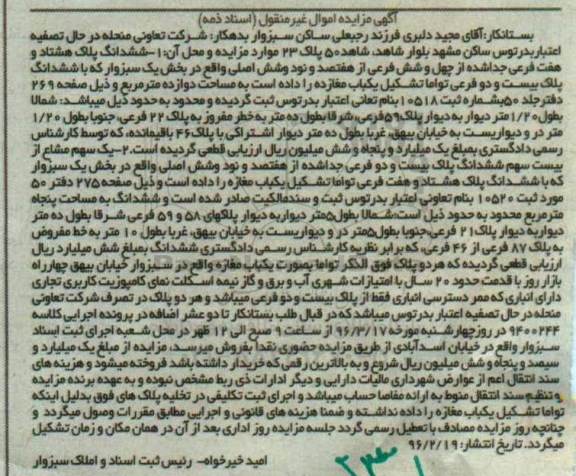 آگهی مزایده اموال غیرمنقول (اسناد ذمه)
بستانکار:آقای مجید دلبری فرزند رجبعلی ساکن سبزوار بدهکار: شرکت تعاونی منحله در حال تصفیه
اعتباربدرتوس ساکن مشهد بلوار شاهد، شاهد۵۰ پلاک ۲۳ موارد مزایده و محل آن: ۱-ششدانگ پلاک هشتاد و
هفت فرعی جداشده از چهل و شش فرعی از هفتصد و نود وشش اصلی واقع در بخش یک سبزوار که با ششدانگ
پلاک بیست و دو فرعی تواما تشکیل یکباب مغازه را داده است به مساحت دوازده مترمربع و ذیل صفحه ۲۶۹
دفترجلد ۵۰بشماره ثبت ۱۰۵۱۸بنام تعانی اعتبار بدرتوس ثبت گردیده و محدود به حدود ذیل میباشد: شمالا
بطول۱/۲۰متر دیوار به دیوار پلاک۵۹فرعی، شرقا بطول ده متر به خطر مفروز به پلاک ۲۲ فرعی، جنوبا بطول ۱/۲۰
متر در و دیواریست به خیابان بیهق، غربا بطول ده متر دیوار اشتراکی با پلاک۴۶ باقیمانده، که توسط کارشناس
رسمی دادگستری بمبلغ یک میلیارد و پنجاه و شش میلیون ریال ارزیابی قطعی گردیده است.۲-یک سهم مشاع از
بیست سهم ششدانگ پلاک بیست و دو فرعی جداشده از هفتصد و نود وشش اصلی واقع در بخش یک سبزوار
که با ششدانگ پلاک هشتاد و هفت فرعی تواما تشکیل یکباب مغازه را داده است و ذیل صفحه۲۷۵ دفتر ۵۰
مورد ثبت ۱۰۵۲۰ بنام تعاونی اعتبار بدرتوس ثبت و سندمالکیت صادر شده است و ششدانگ به مساحت پنجاه
مترمربع محدود به حدود ذیل است:شمالا بطول۵متر دیواربه دیوار پلاکهای۵۸ و ۵۹ فرعی شرقا بطول ده متر
دیواربه دیوار پلاک۲۱ فرعی،جنوبا بطول۵متر در و دیواریست به خیابان بیهق، غربا بطول ۱۰ متر به خط مفروض
به پلاک ۸۷ فرعی از ۴۶ فرعی، که برابر نظریه کارشناس رسمی دادگستری ششدانگ بمبلغ شش میلیارد ریال
ارزیابی قطعی گردیده که هردو پلاک فوق الذکر تواما بصورت یکباب مغازه واقع در سبزوار خیابان بیهق چهارراه
بازار روز با قدمت حدود ۲۰ سال با امتیازات شهری آب و برق و گاز نیمه اسکلت نمای کامپوزیت کاربری تجاری
دارای انباری که ممر دسترسی انباری فقط از پلاک بیست و دو فرعی میباشد و هر دو پلاک در تصرف شرکت تعاونی
منحله در حال تصفیه اعتبار بدرتوس میباشد که در قبال طلب بستانکار تا دو عشر اضافه در پرونده اجرایی کلاسه
۹۴۰۰۲۴۴ در روزچهارشنبه مورخه ۹۶/۳/۱۷ از ساعت ۹ صبح الی ۱۲ ظهر در محل شعبه اجرای ثبت اسناد
سبزوار واقع در خیابان اسدآبادی از طریق مزایده حضوری نقدا بفروش میرسد، مزایده از مبلغ یک میلیارد و
سیصد و پنجاه و شش میلیون ریال شروع و به بالاترین رقمی که خریدار داشته باشد فروخته میشود و هزینه های
سند انتقال اعم از عوارض شهرداری مالیات دارایی و دیگر ادارات ذی ربط مشخص نبوده و به عهده برنده مزایده
و تنظیم سند انتقال منوط به ارائه مفاصا حساب میباشد و اجرای ثبت تکلیفی در تخلیه پلاک های فوق بدلیل اینکه
تواما تشکیل یکباب مغازه را داده نداشته و ضمنا هزینه های قانونی و اجرایی مطابق مقررات وصول میگردد و
چنانچه روز مزایده مصادف با تعطیل رسمی گردد جلسه مزایده روز اداری بعد از آن در همان مکان و زمان تشکیل
میگردد. تاریخ انتشار: ۹۶/۲/۱۹
امید خیرخواه- رئیس ثبت اسناد و املاک سبزوار